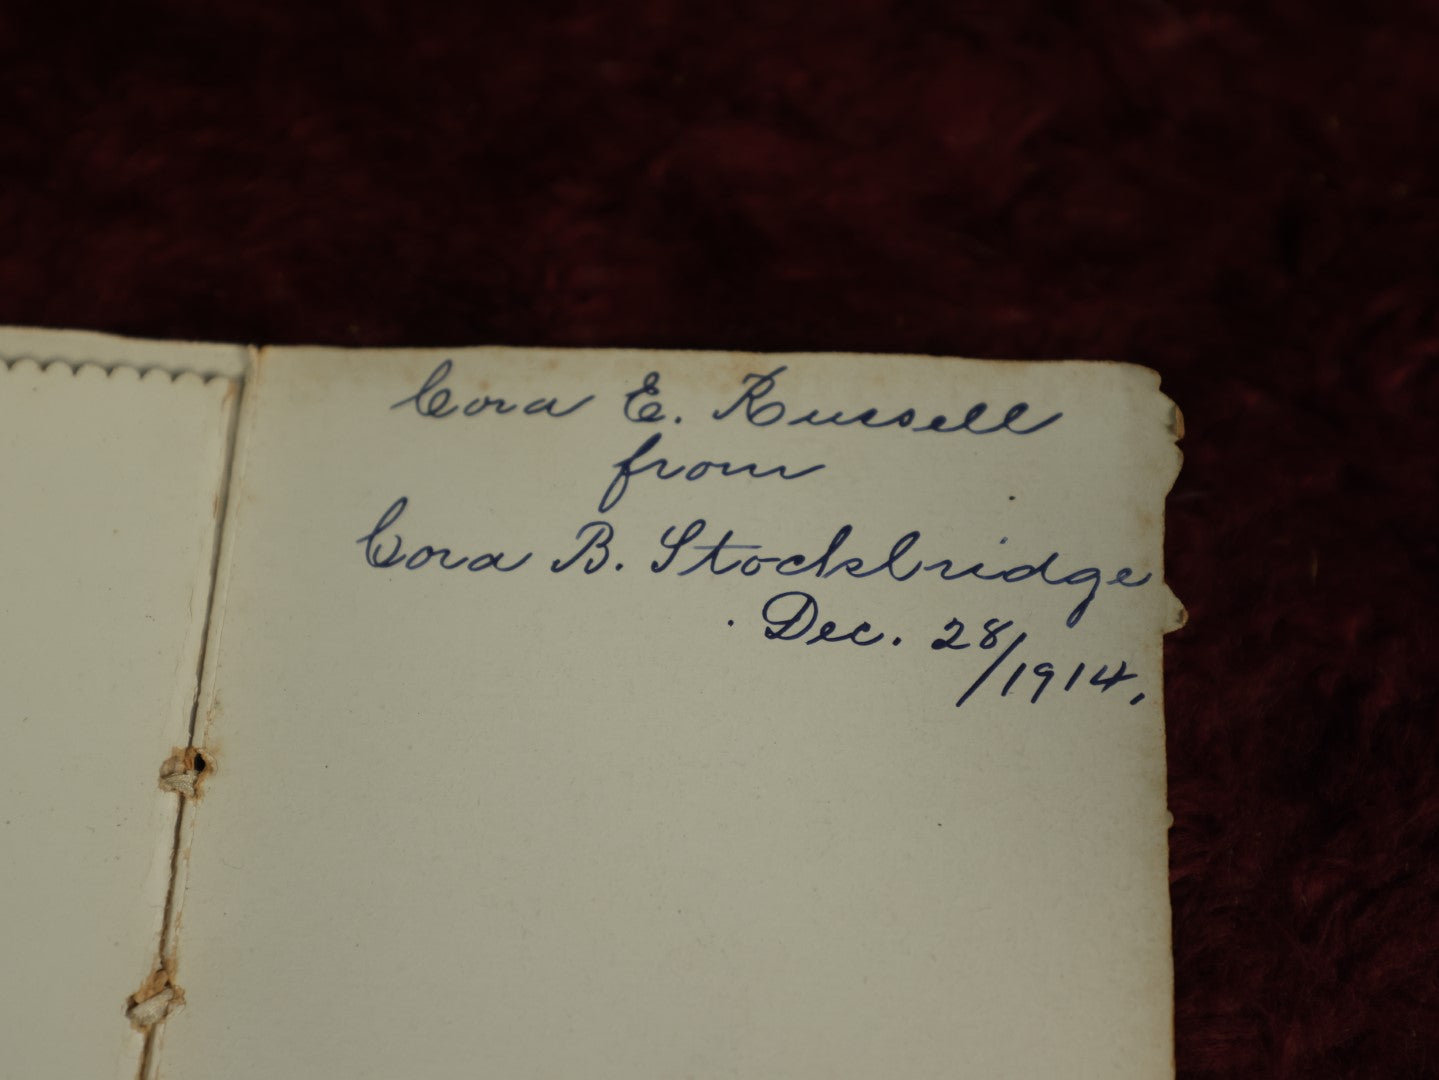 Cora E. Russell
from
Cora B. Stockbridge
Dec. 28/1914.